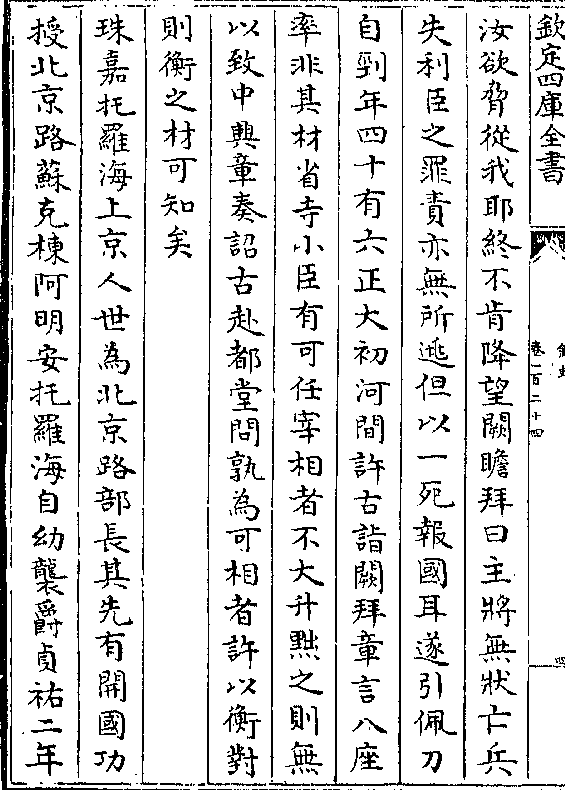 欽定四庫全書
卷一百二十四
汝欲脅從我耶終不肯降望闕瞻拜曰主將無狀亡兵
失利臣之罪責亦無所逃但以一死報國耳遂引佩刀
自剄年四十有六正大初河間許古詣闕拜章言八座
率非其材省寺小臣有可任宰相者不大升黜之則無
以致中興章奏詔古赴都堂問孰為可相者許以衡對
則衡之材可知矣
珠嘉托羅海上京人世為北京路部長其先有開國功
授北京路蘇克棟阿明安托羅海自幼襲爵貞祐二年